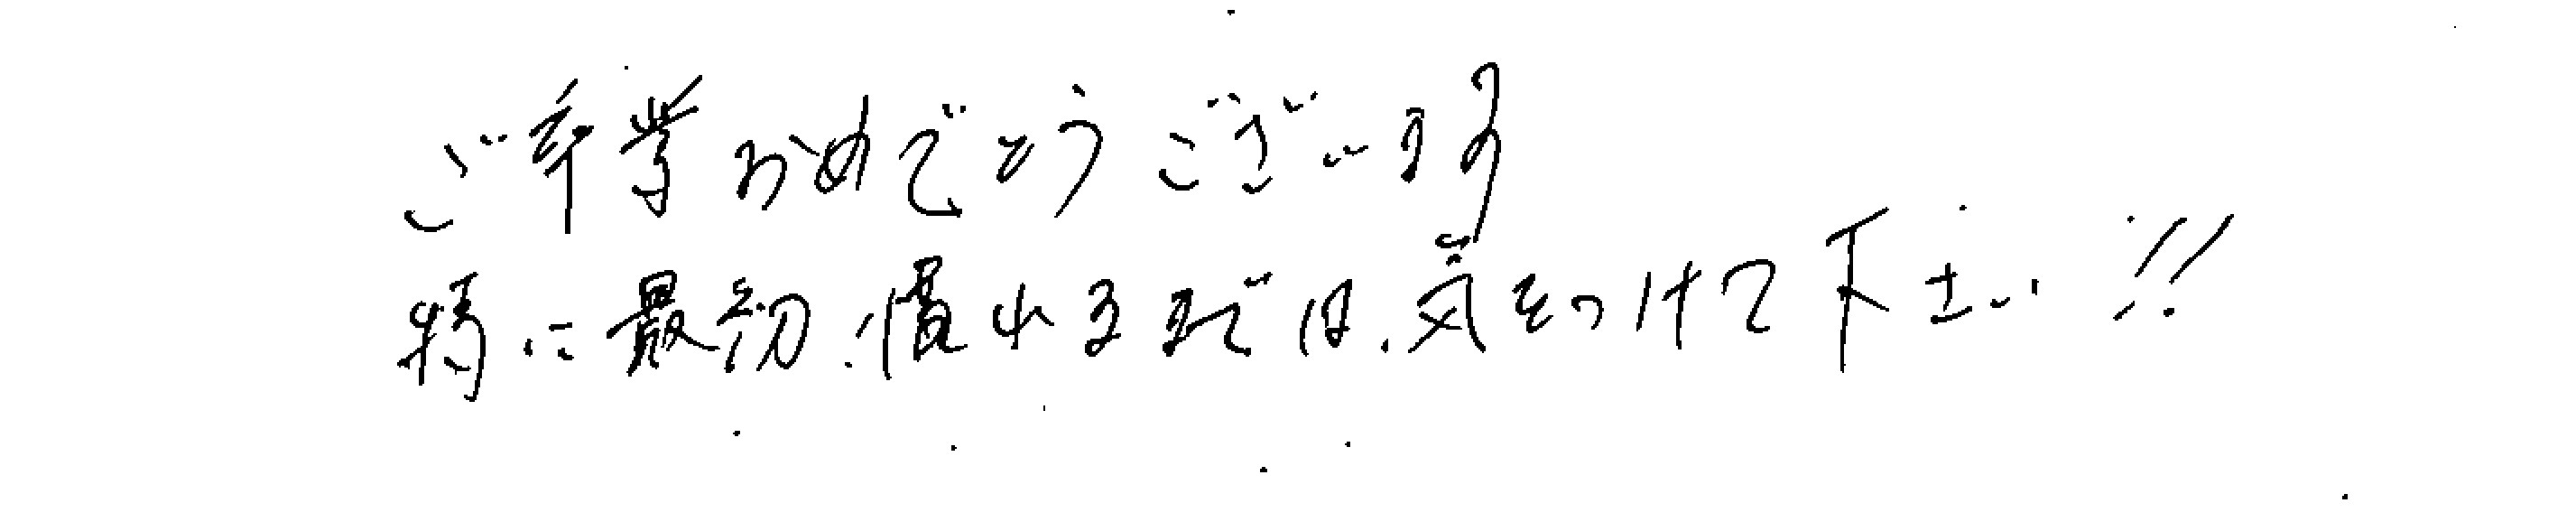 ご卒業おめでとうございます
特に最初、慣れるまでは、気をつけて下さい!!